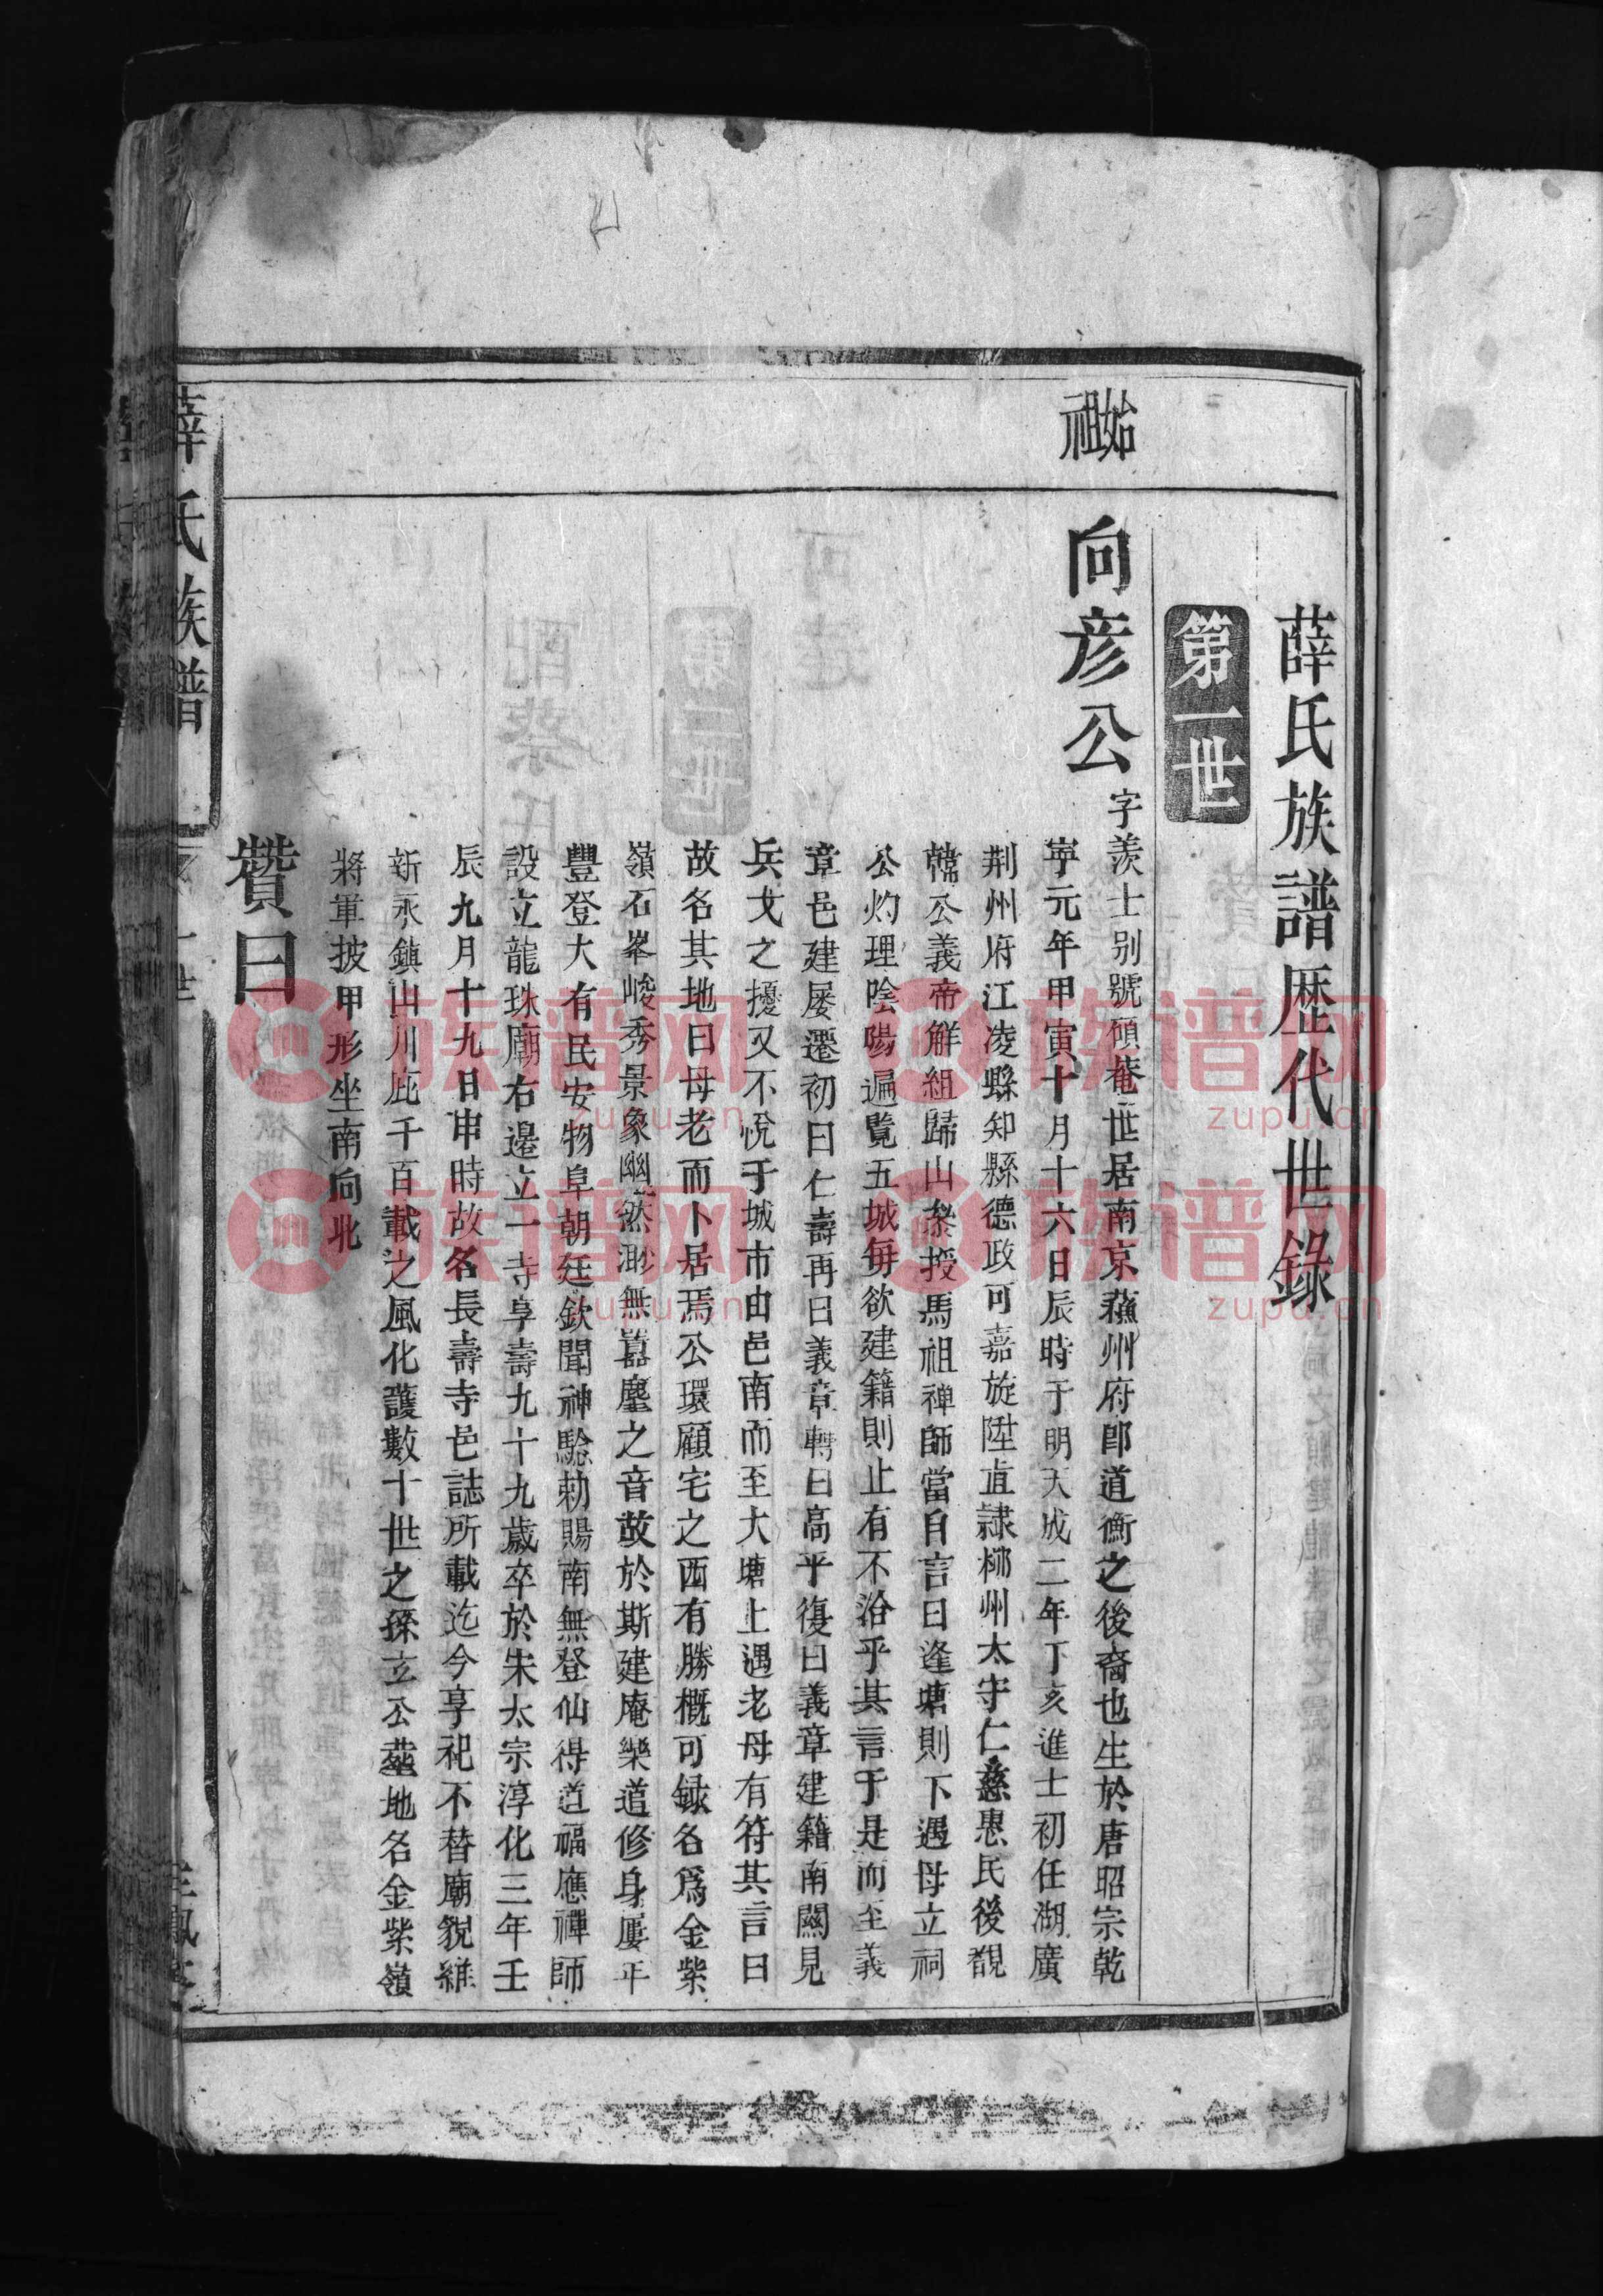 薛氏族譜歷代世錄
第一世
始祖
向彥公
字羨士別號碩菴世居南京蘓州府郎道衡之後裔也生於唐昭宗乾
寧元年甲寅十月十六日辰時于明天成二年丁亥進士初任湖廣
荆州府江凌縣知縣德政可嘉旋陞直隷柳州太守仁慈惠民後覩
韓公義帝解組歸山叅授馬祖禪師當自言曰逢塘則下遇母立祠
公灼理陰陽遍覽五城每欲建籍則止有不洽乎其言于是而至義
章邑建屡遷初曰仁壽再曰義章轉曰高平復曰義章建籍南闗見
兵戈之擾又不悅于城市由邑南而至大塘上遇老母有符其言曰
故名其地曰母老而卜居焉公環顧宅之西有勝概可録名爲金紫
嶺石峯峻秀景象幽然渺無囂塵之音故於斯建庵樂道修身屢平
豐登大有民安物阜朝廷欽聞神驗勅賜南無登仙得道福應禪師
設立龍珠廟右邊立一寺享壽九十九歲卒於朱太宗淳化三年壬
辰九月十九日申時故名長壽寺邑誌所載迄今享祀不替廟貌維
新永鎮山川庇千百載之風化護數十世之孫立公塟地名金紫嶺
將軍披甲形坐南向北
贊曰
薛氏族譜
一世
族谱网
zupu.cn
族谱网
zupu.cn
族谱网
zupu.cn
族谱网
zupu.cn